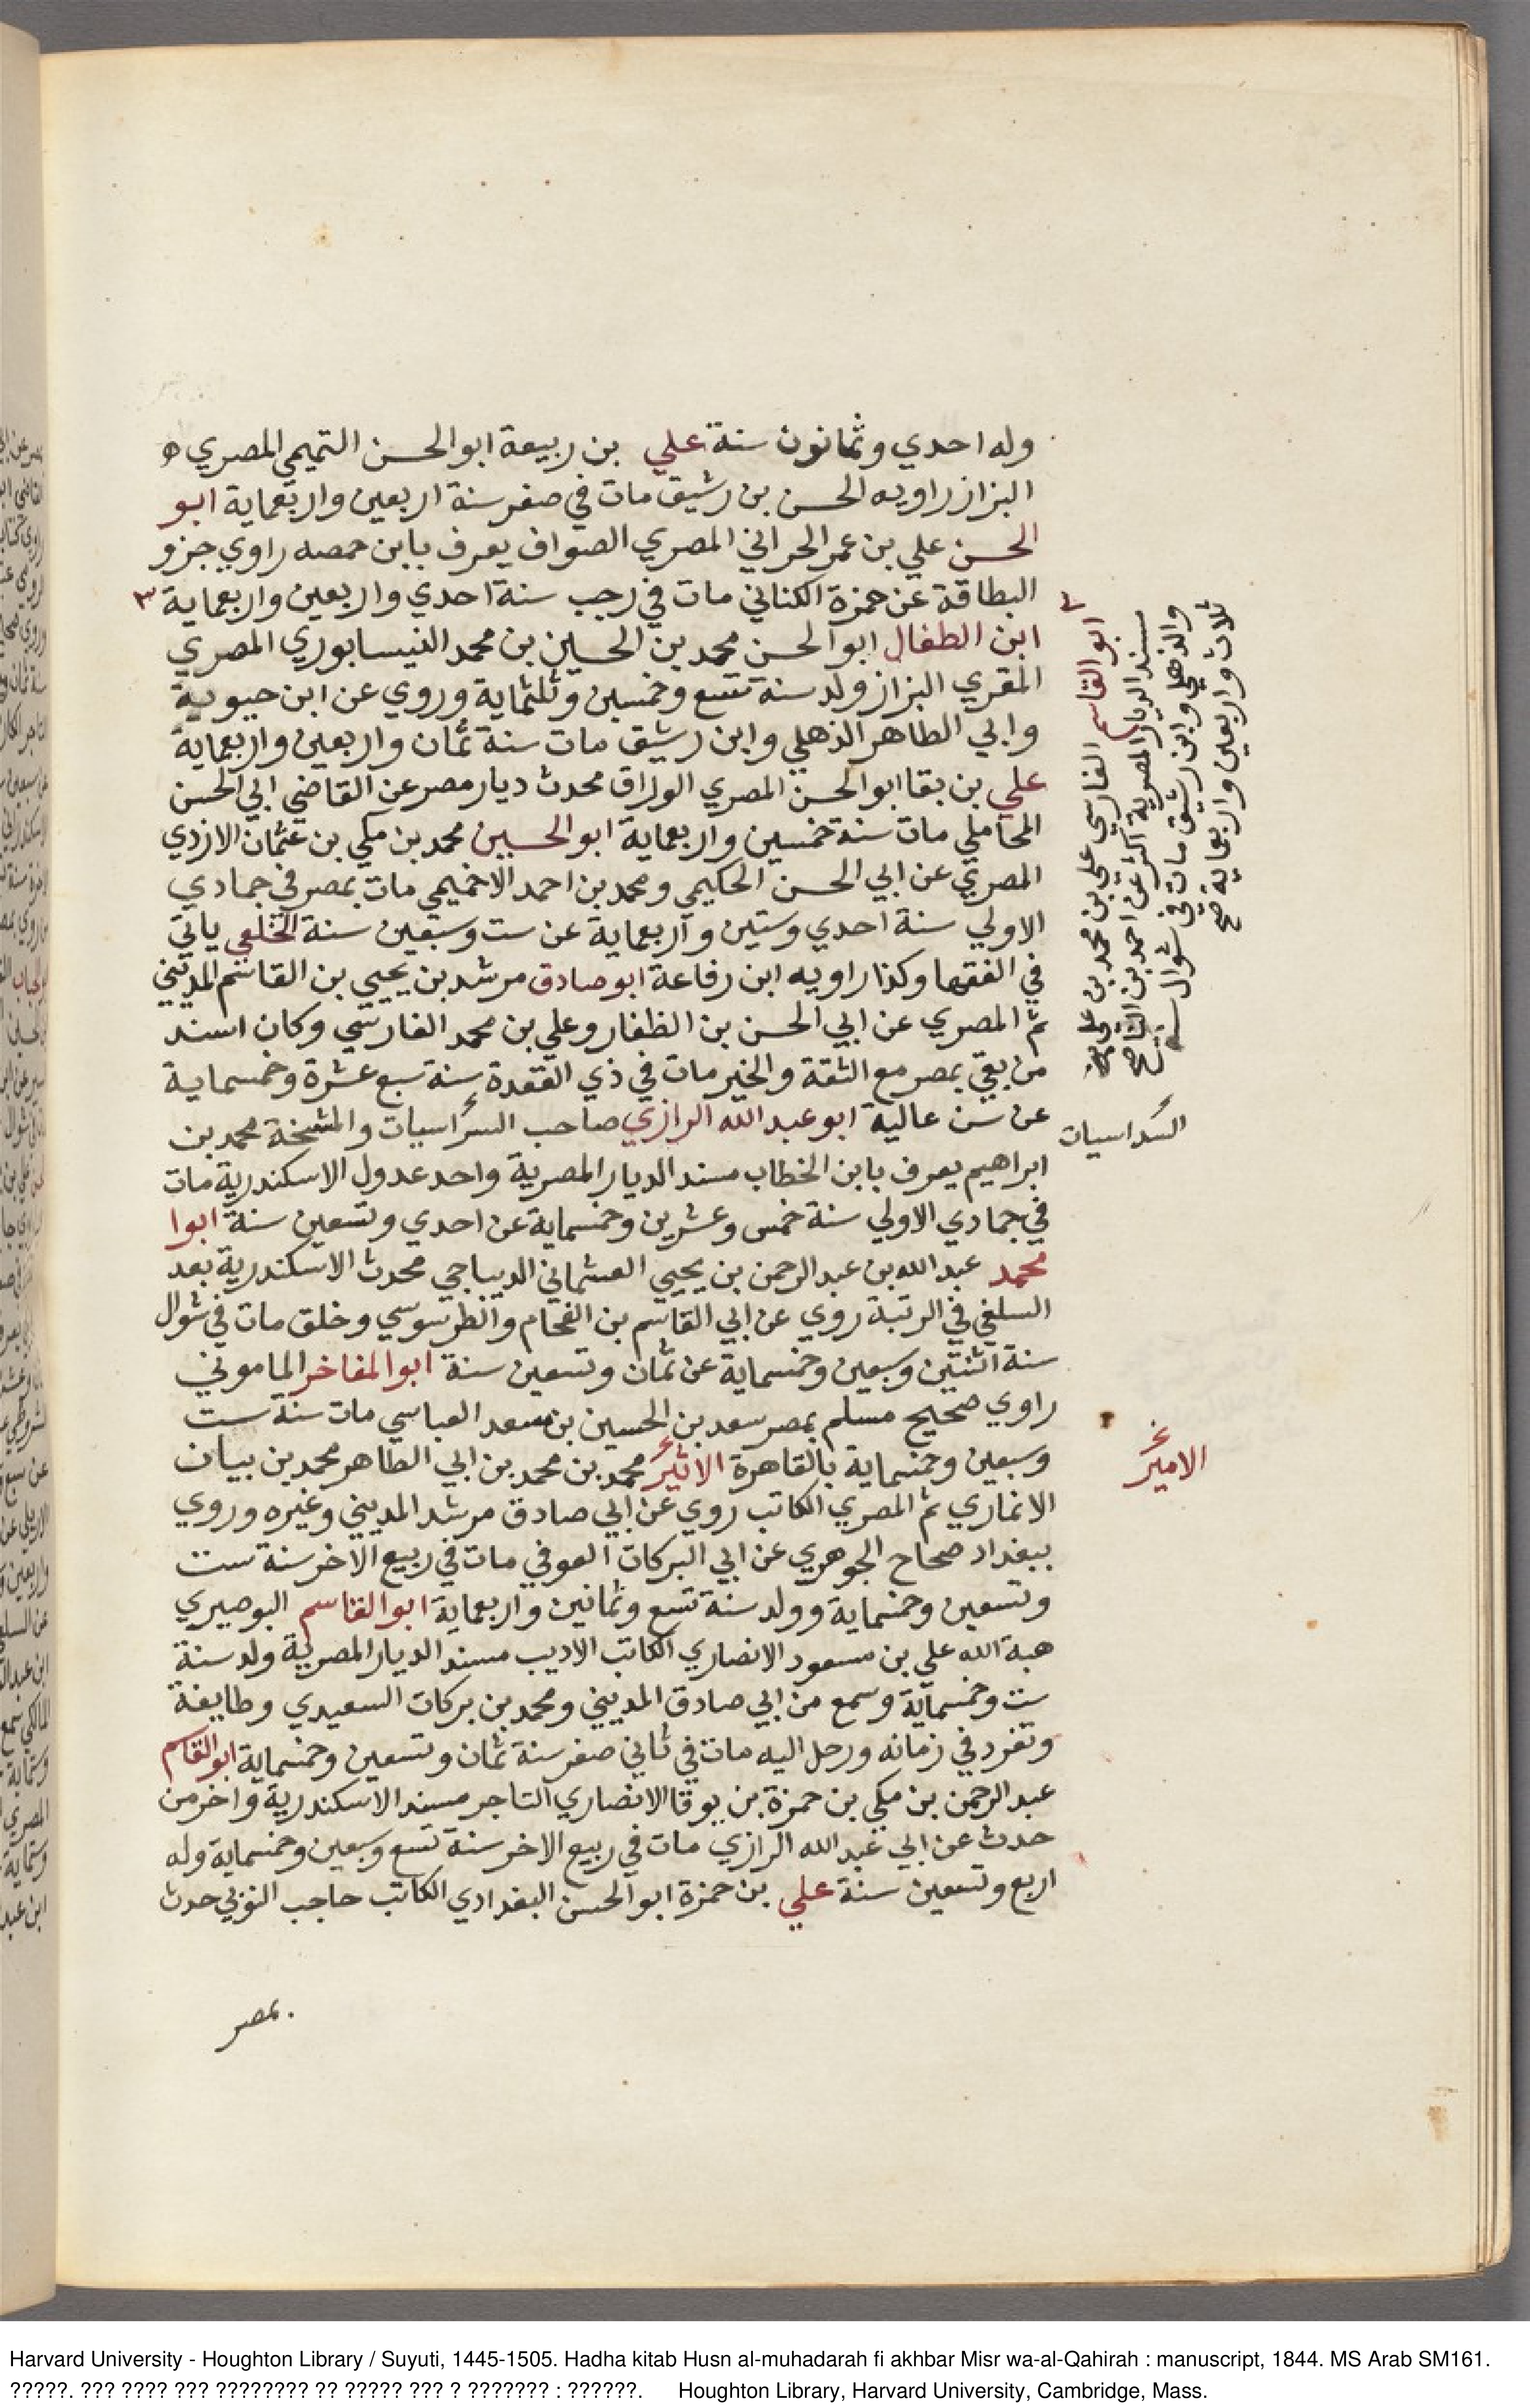 وله احدي وثمانون سنة علي بن ربيعة ابوالحسن التميمي المصري
البزاز راويه الحسن بن رشيق مات في صفر سنة اربعين واربعماية ابو
الحسن علي بن عمر الحراني المصري الصواف يعرف بابن حمصه راوي جزو
البطاقة عن حمزة الكناني مات في رجب سنة احدي واربعين واربعماية
ابن الطفال ابوالحسن محمد بن الحسين بن محمد النيسابوري المصري
المقري البزاز ولد سنة تسع وخمسين وثلثماية وروي عن ابن حيوية
وابي الطاهر الذهلي وابن رشيق مات سنة ثمان واربعين واربعماية
علي بن بقا ابوالحسن المصري الوراق محدث ديار مصر عن القاضي ابي الحسن
المحاملي مات سنة خمسين واربعماية ابوالحسين محمد بن مكي بن عثمان الازدي
المصري عن ابي الحسن الحكيمي ومحمد بن احمد الاخميمي مات بمصر في جمادي
الاولي سنة احدي وستين واربعماية عن ست وسبعين سنة الخلعي ياتي
في الفقها وكذا راويه ابن رفاعة ابوصادق مرشد بن يحيي بن القاسم المديني
ثم المصري عن ابي الحسن بن الظفار وعلي بن محمد الفارسي وكان اسند
من بقي بمصر مع الثقة والخير مات في ذي القعدة سنة سبع عشرة وخمسماية
عن سن عالية ابوعبدالله الرازي صاحب السراسيات والمشيخة محمد بن
ابراهيم يعرف بابن الخطاب مسند الديار المصرية واحد عدول الاسكندرية مات
في جمادي الاولي سنة خمس وعشرين وخمسماية عن احدي وتسعين سنة ابوا
محمد عبدالله بن عبدالرحمن بن يحيي العثماني الديباجي محدث الاسكندرية بعد
السلفي في الرتبة روي عن ابي القاسم بن الفحام والطرسوسي وخلق مات في شوال
سنة اثنتين وسبعين وخمسماية عن ثمان وتسعين سنة ابوالمفاخر الماموني
راوي صحيح مسلم بمصر سعد بن الحسين بن سعد العباسي مات سنة ست
وسبعين وخمسماية بالقاهرة الاثير محمد بن محمد بن ابي الطاهر محمد بن بيان
الانماري ثم المصري الكاتب روي عن ابي صادق مرشد المديني وغيره وروي
ببغداد صحاح الجوهري عن ابي البركات العوفي مات في ربيع الاخر سنة ست
وتسعين وخمسماية وولد سنة تسع وثمانين واربعماية ابوالقاسم البوصيري
هبة الله علي بن مسعود الانصاري الكاتب الاديب مسند الديار المصرية ولد سنة
ست وخمسماية وسمع من ابي صادق المديني ومحمد بن بركات السعيدي وطايفة
وتفرد في زمانه ورحل اليه مات في ثاني صفر سنة ثمان وتسعين وخمسماية ابوالقاسم
عبدالرحمن بن مكي بن حمزة بن يوقا الانصاري التاجر مسند الاسكندرية واخر من
حدث عن ابي عبدالله الرازي مات في ربيع الاخر سنة تسع وسبعين وخمسماية وله
اربع وتسعين سنة علي بن حمزة ابوالحسن البغدادي الكاتب حاجب النوبي حدث
بمصر
ابوالقاسم الفارسي علي بن محمد بن علي
مسند الديار المصرية اكثر عن احمد بن الناصح
والذهلي وابن رشيق مات في شوال سنة
ثلاث واربعين واربعماية صح
السداسيات
الامير
Harvard University - Houghton Library / Suyuti, 1445-1505. Hadha kitab Husn al-muhadarah fi akhbar Misr wa-al-Qahirah : manuscript, 1844. MS Arab SM161.
?????. ??? ???? ??? ???????? ?? ????? ??? ? ??????? : ??????. Houghton Library, Harvard University, Cambridge, Mass.